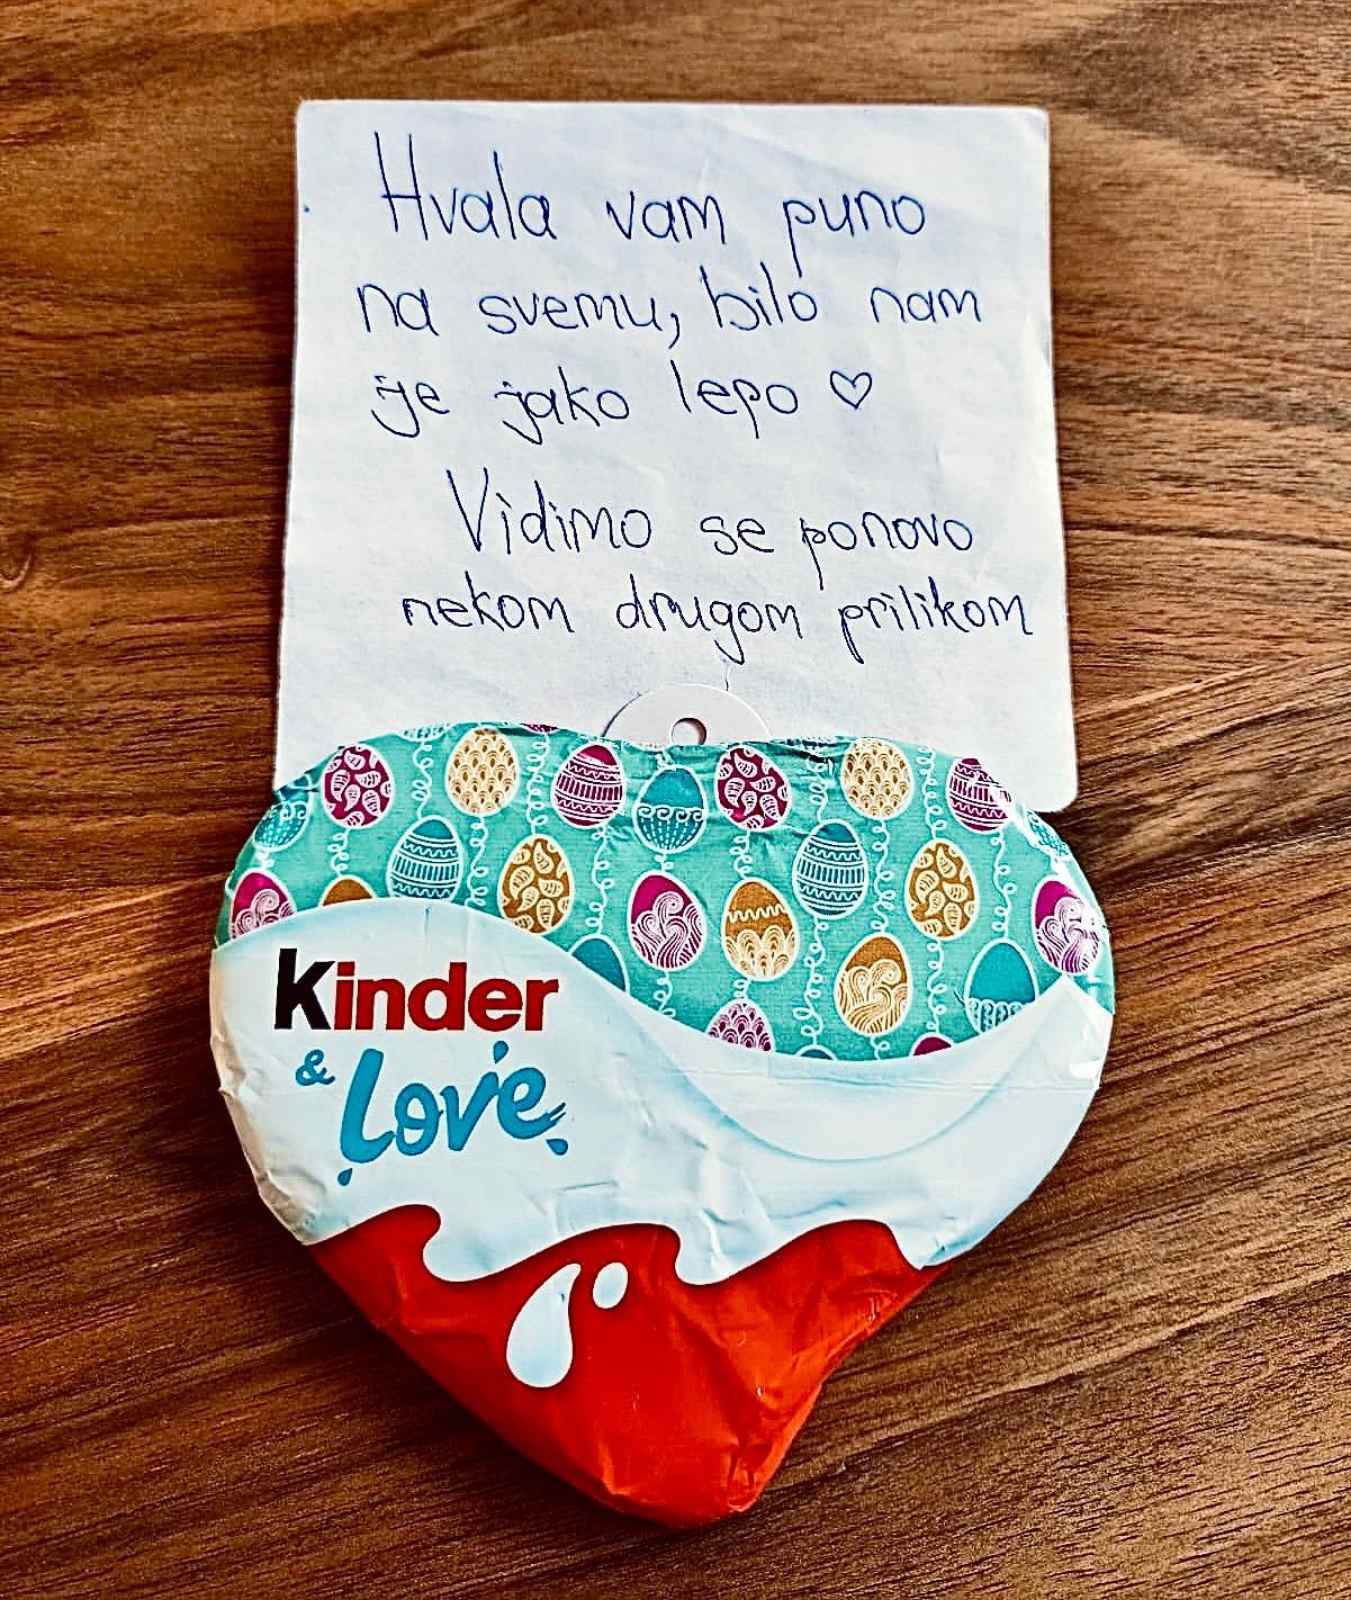 Hvala vam puno
na svemu, bilo nam
je jako lepo ♡
Vidimo se ponovo
nekom drugom prilikom
Kinder
& Love